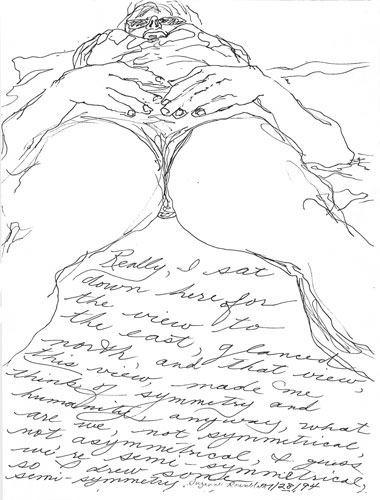 Really, I sat
down here for
the view to
the east, glanced
north, and that view,
this view, made me
think of symmetry and
humanity anyway, what
are we, not symmetrical,
not asymmetrical, I guess
we're semi-symmetrical,
so I drew some
semi-symmetry. Suzanne 7/28/94